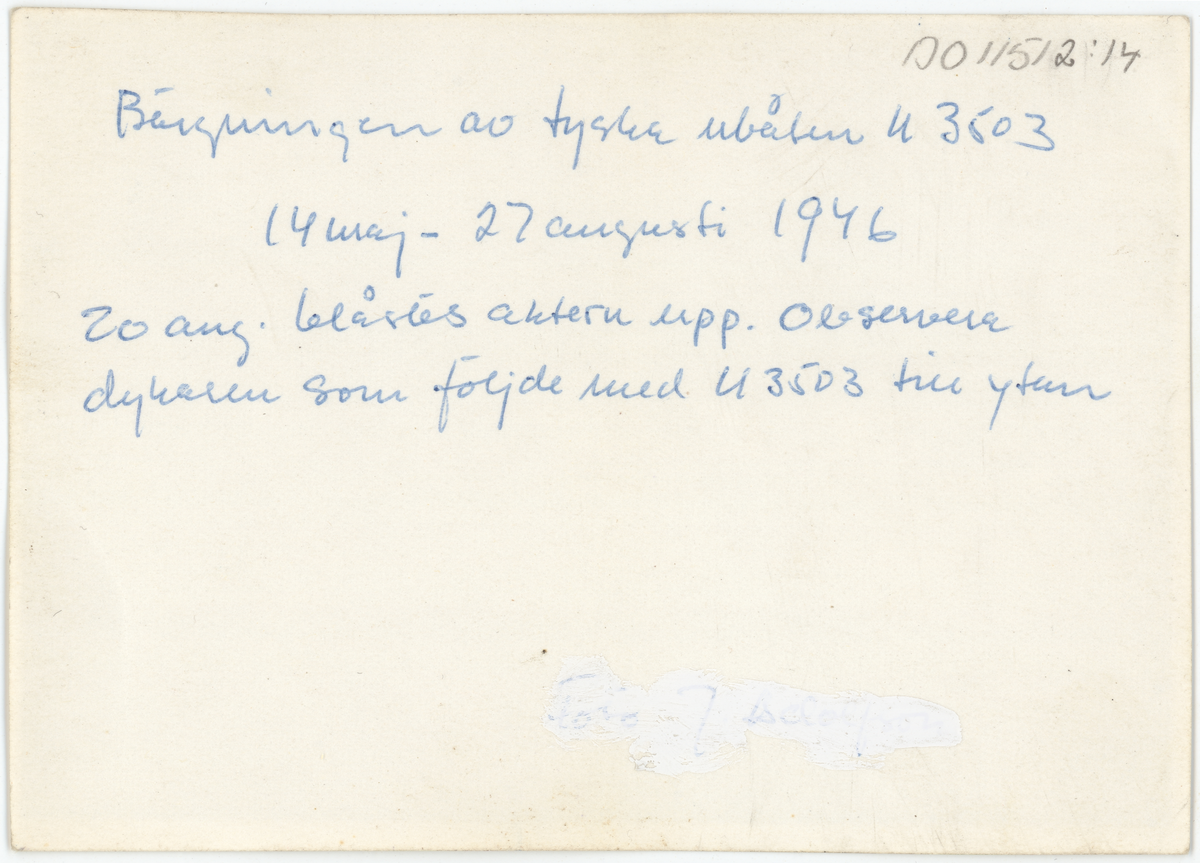 DO11512:14
Bärgningen av tyska ubåten U 3503
14 maj - 27 augusti 1946
20 aug. blåstes aktern upp. Observera
dykaren som följde med U 3503 till ytan
Foto J